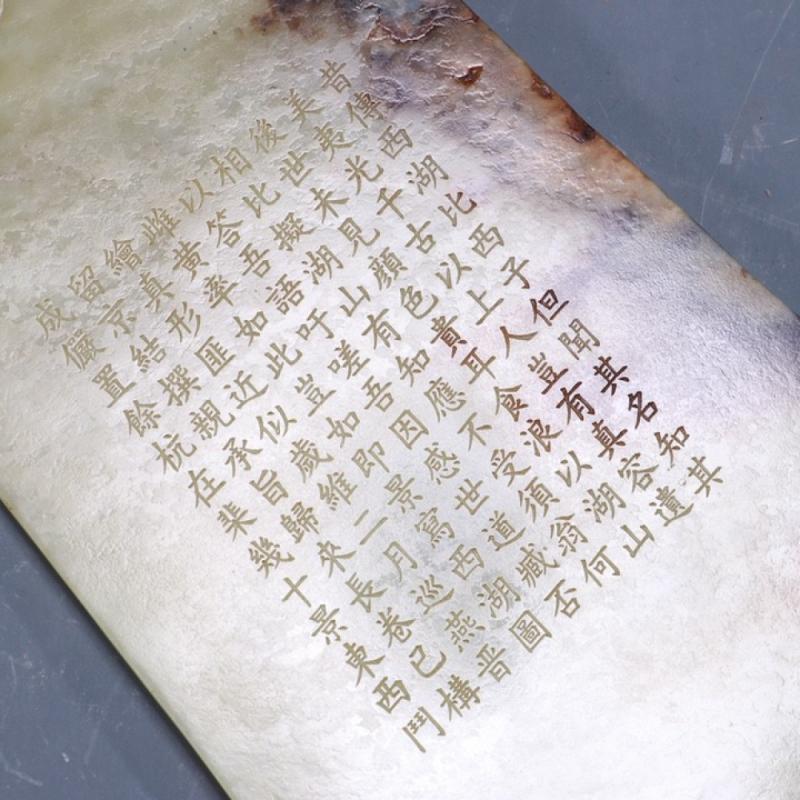 昔傳西湖比西子但聞其名知其
美夷光千古以上人豈有真容遺
後世未見顏色貴耳食浪以湖山
相比擬湖山有知應不受須翁何
以答吾語吁嗟吾因感世道藏否
雎黃率如此豈如即景寫西湖圖
繪真形匪近似歲維二月巡燕晉
留京結撰親承旨歸來長卷已構
成儼置餘杭在棐幾十景東西鬥